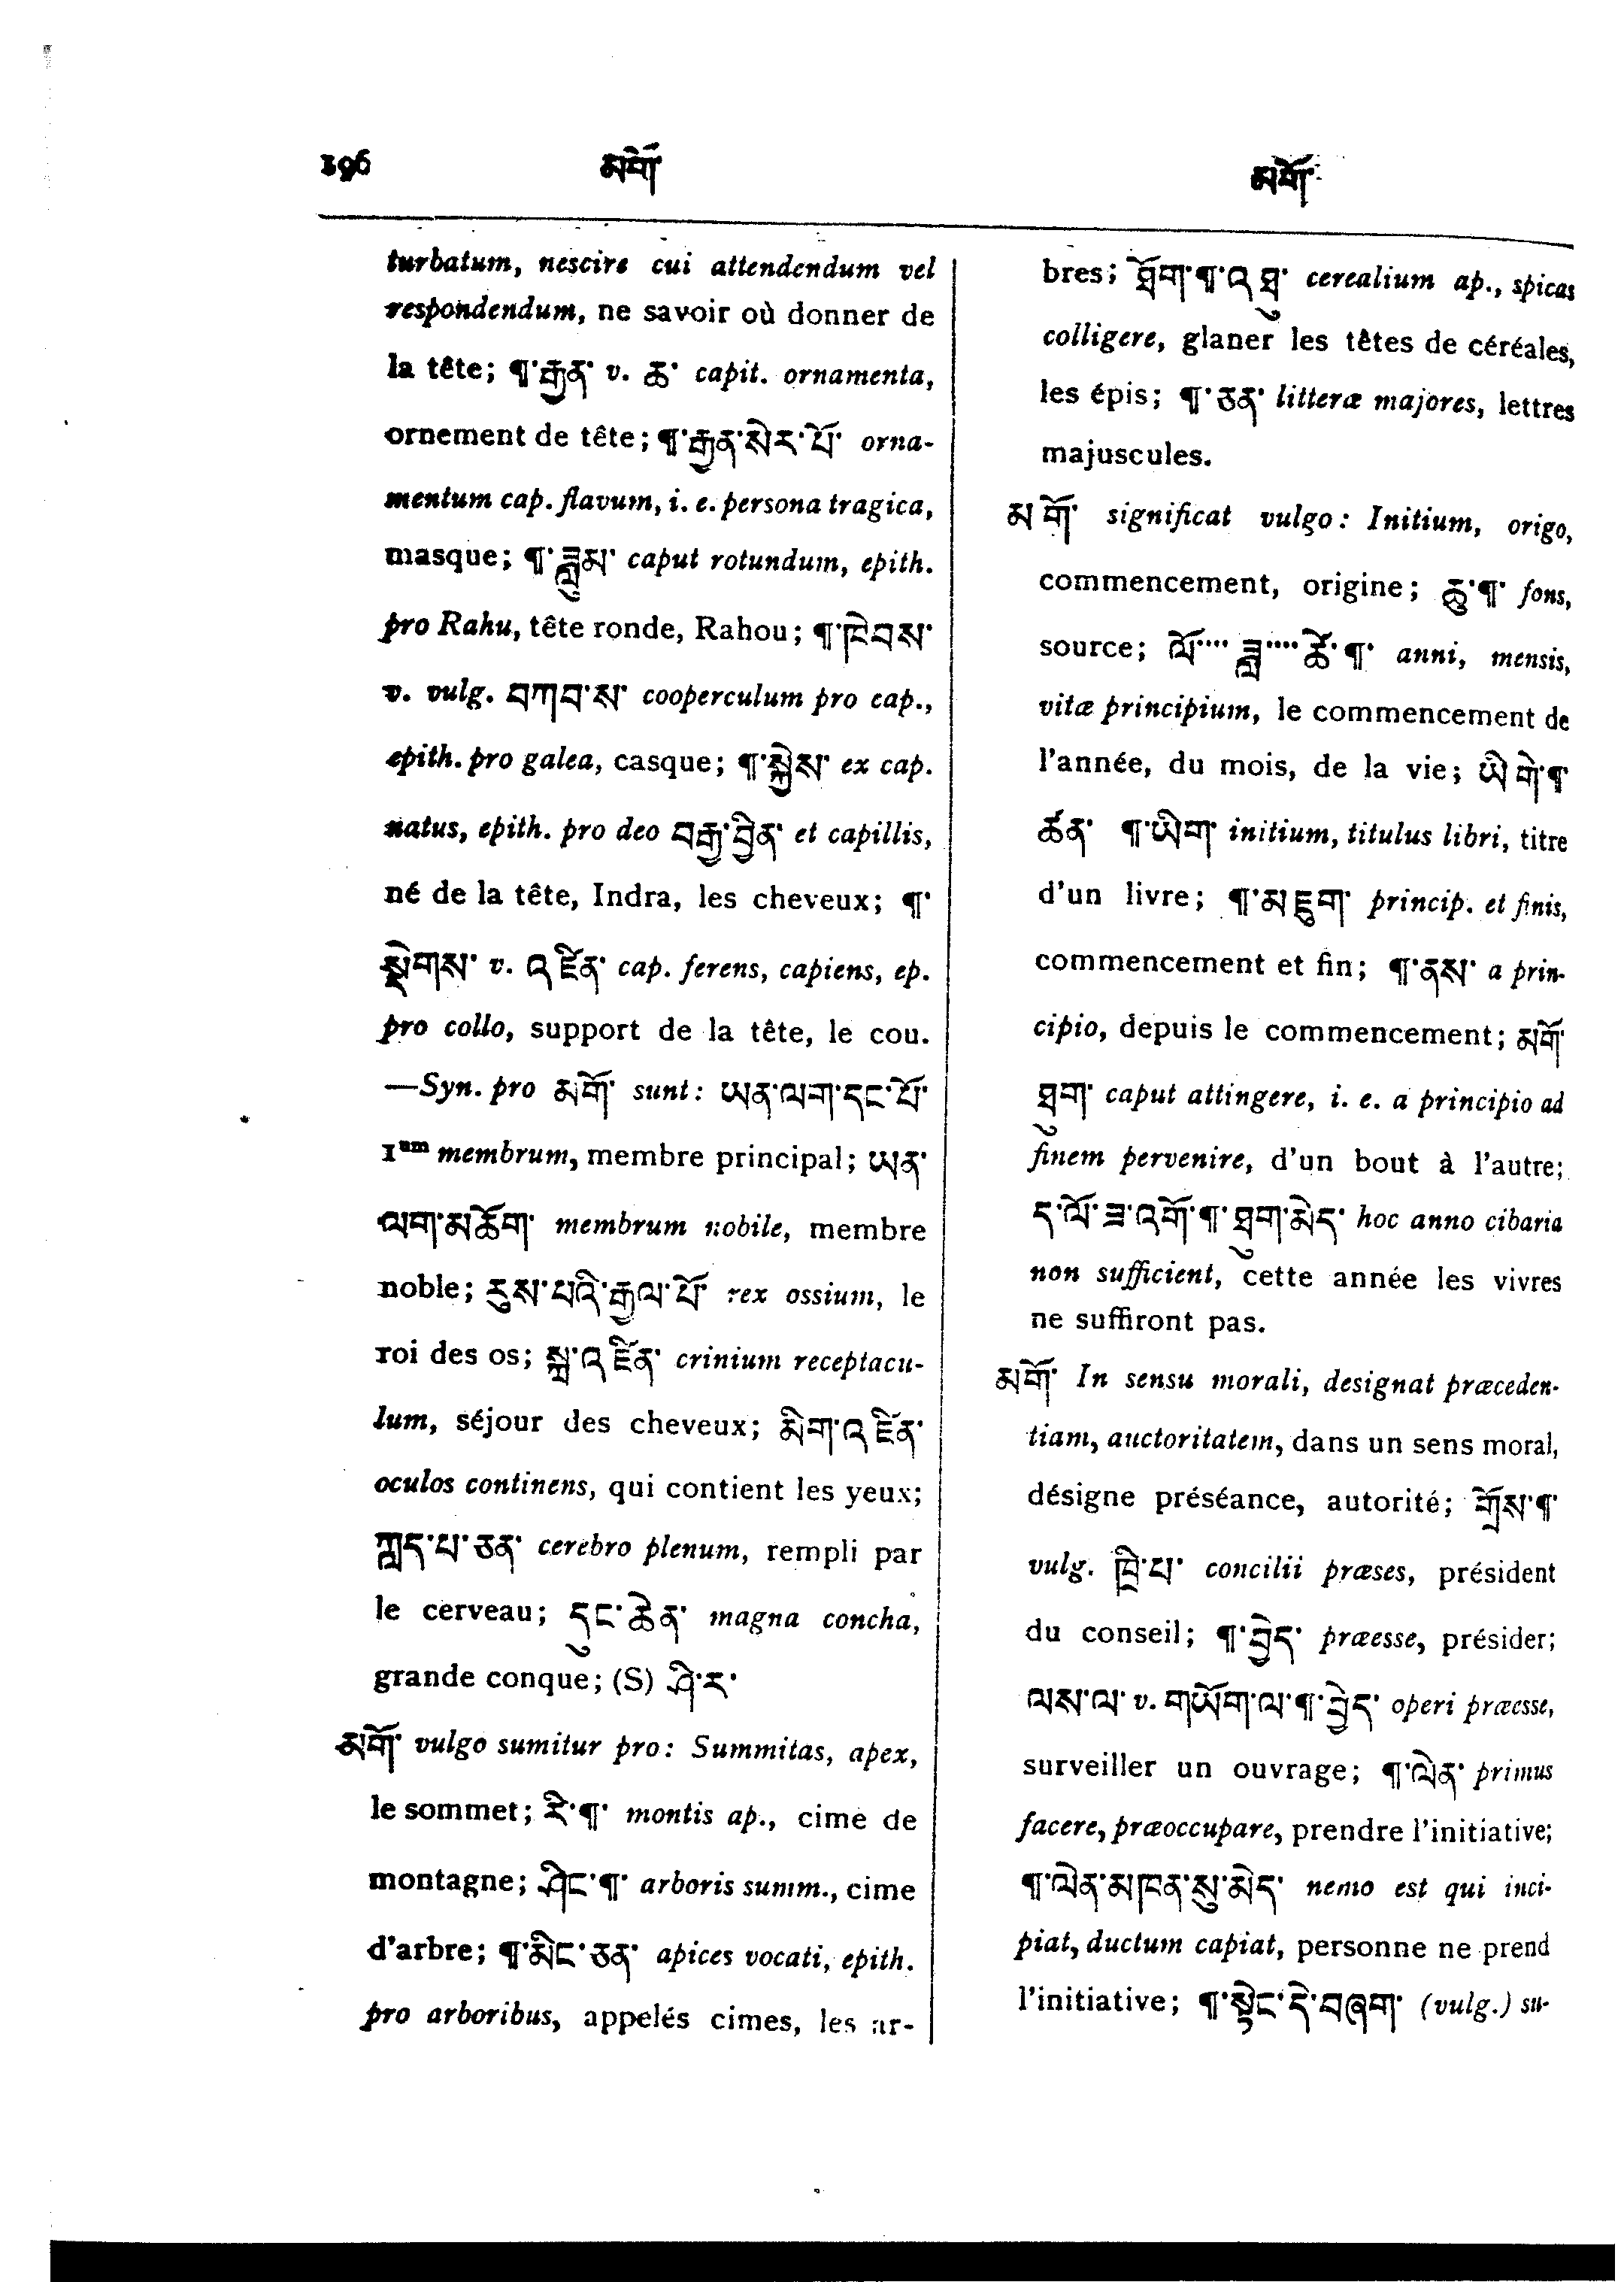 196 མགོ་ མགོ་
turbatum, nescire cui attendendum vel
respondendum, ne savoir où donner de
la tête; ¶་རྒྱན་ v. ཆ་ capit. ornamenta,
ornement de tête; ¶་རྒྱན་སེར་པོ་ orna-
mentum cap. flavum, i. e. persona tragica,
masque; ¶་ཟླུམ་ caput rotundum, epith.
pro Rahu, tête ronde, Rahou; ¶་ཁེབས་
v. vulg. བཀབ་ས་ cooperculum pro cap.,
epith. pro galea, casque; ¶་སྐྱེས་ ex cap.
natus, epith. pro deo བརྒྱ་བྱིན་ et capillis,
né de la tête, Indra, les cheveux; ¶་
སྡེགས་ v. འཛིན་ cap. ferens, capiens, ep.
pro collo, support de la tête, le cou.
—Syn. pro མགོ་ sunt: ཡན་ལག་དང་པོ་
1um membrum, membre principal; ཡན་
ལག་མཆོག་ membrum nobile, membre
noble; རུས་པའི་རྒྱལ་པོ་ rex ossium, le
roi des os; སྐྲ་འཛིན་ crinium receptacu-
lum, séjour des cheveux; མིག་འཛིན་
oculos continens, qui contient les yeux;
ཀླད་པ་ཅན་ cerebro plenum, rempli par
le cerveau; དུང་ཆེན་ magna concha,
grande conque; (S) ཤི་ར་
མགོ་ vulgo sumitur pro: Summitas, apex,
le sommet; རི་¶་ montis ap., cime de
montagne; ཤིང་¶་ arboris summ., cime
d'arbre; ¶་མིང་ཅན་ apices vocati, epith.
pro arboribus, appelés cimes, les ar-
bres; ཐོག་¶་འཐུ་ cerealium ap., spicas
colligere, glaner les têtes de céréales,
les épis; ¶་ཅན་ litteræ majores, lettres
majuscules.
མགོ་ significat vulgo: Initium, origo,
commencement, origine; ཆུ་¶་ fons,
source; ལོ་... ཟླ་...ཚེ་¶་ anni, mensis,
vitæ principium, le commencement de
l'année, du mois, de la vie; ཡི་གེ་¶་
ཚན་ ¶་ཡིག་ initium, titulus libri, titre
d'un livre; ¶་མཇུག་ princip. et finis,
commencement et fin; ¶་ནས་ a prin-
cipio, depuis le commencement; མགོ་
ཐུག་ caput attingere, i. e. a principio ad
finem pervenire, d'un bout à l'autre;
ད་ལོ་ཟ་འགོ་¶་ཐུག་མེད་ hoc anno cibaria
non sufficient, cette année les vivres
ne suffiront pas.
མགོ་ In sensu morali, designat præceden-
tiam, auctoritatem, dans un sens moral,
désigne préséance, autorité; གྲོས་¶་
vulg. ཁྲི་པ་ concilii præses, président
du conseil; ¶་བྱེད་ præesse, présider;
ལས་ལ་ v. གཡོག་ལ་¶་བྱེད་ operi præesse,
surveiller un ouvrage; ¶་ལེན་ primus
facere, præoccupare, prendre l'initiative;
¶་ལེན་མཁན་སུ་མེད་ nemo est qui inci-
piat, ductum capiat, personne ne prend
l'initiative; ¶་སྟེང་དེ་བཞག་ (vulg.) su-